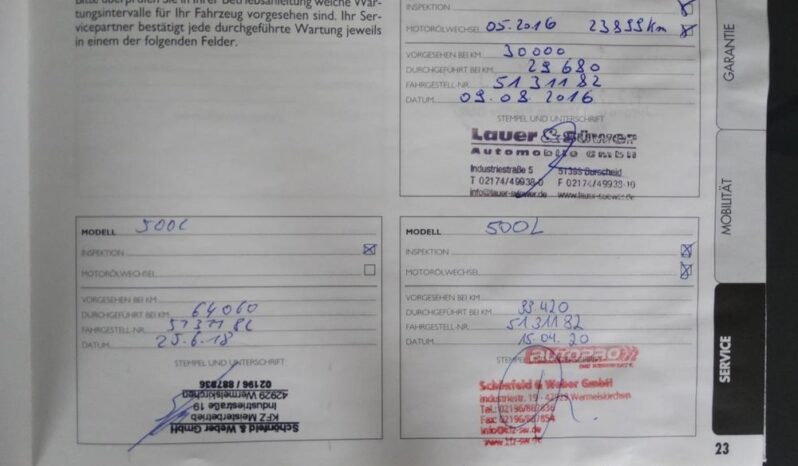 tungsintervalle für Ihr Fahrzeug vorgesehen sind. Ihr Ser-
vicepartner bestätigt jede durchgeführte Wartung jeweils
in einem der folgenden Felder.
INSPEKTION
MOTORÖLWECHSEL 05.2016 23899km
VORGESEHEN BEI KM 30000
DURCHGEFÜHRT BEI KM 29680
FAHRGESTELL-NR. 5131182
DATUM 09.08.2016
STEMPEL UND UNTERSCHRIFT
Lauer & Süwer
Automobile GmbH
Industriestraße 5 51399 Burscheid
T 02174/49938-0 F 02174/49938-10
info@lauer-suewer.de www.lauer-suewer.de
MODELL 500L
INSPEKTION
MOTORÖLWECHSEL
VORGESEHEN BEI KM
DURCHGEFÜHRT BEI KM 64060
FAHRGESTELL-NR. 5131182
DATUM 25.6.18
STEMPEL UND UNTERSCHRIFT
Schönfeld & Weber GmbH
KFZ Meisterbetrieb
Industriestraße 19
42929 Wermelskirchen
02196 / 887836
MODELL 500L
INSPEKTION
MOTORÖLWECHSEL
VORGESEHEN BEI KM
DURCHGEFÜHRT BEI KM 99420
FAHRGESTELL-NR. 5131182
DATUM 15.04.20
STEMPEL UND UNTERSCHRIFT
AUTOPRO
Schönfeld & Weber GmbH
Industriestr. 19 - 42929 Wermelskirchen
Tel.: 02196/887836
Fax: 02196/887854
info@kfz-sw.de
www.kfz-sw.de
GARANTIE
MOBILITÄT
SERVICE
23